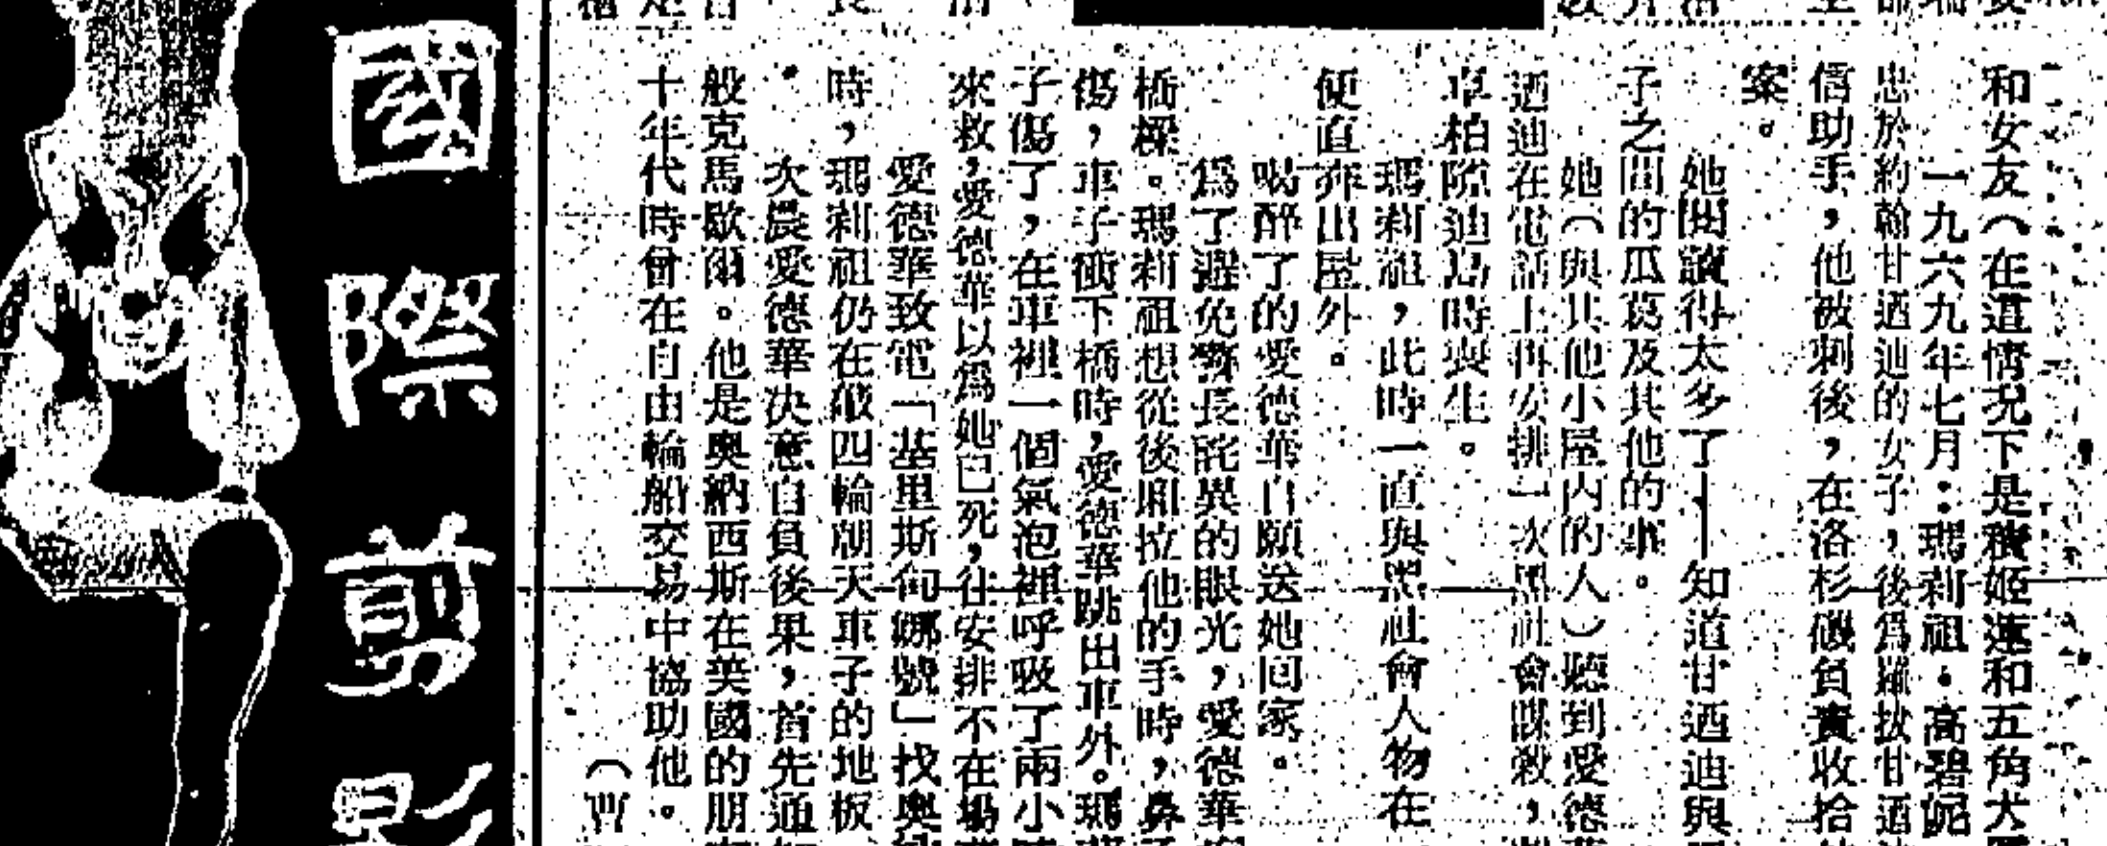 和女友（在這情況下是積姬蓮和五角大
一九六九年七月：瑪莉祖・高碧妮
忠於約翰甘迺迪的女子，後為羅拔甘迺
信助手，他被刺後，在洛杉磯負責收拾
案。
她閱讀得太多了——知道甘迺迪與
子之間的瓜葛及其他的事。
她（與其他小屋內的人）聽到愛德
迺迪在電話上再安排一次黑社會謀殺，
卓柏際迪島時喪生。
瑪莉祖，此時一直與黑社會人物在
便直奔出屋外。
喝醉了的愛德華自願送她回家。
為了避免警長詫異的眼光，愛德華
橋樑。瑪莉祖想從後廂拉他的手時，鼻
傷，車子衝下橋時，愛德華跳出車外。瑪
子傷了，在車裡一個氣泡裡呼吸了兩小
來救，愛德華以為她已死，往安排不在場
愛德華致電「基里斯甸娜號」找奧
時，瑪莉祖仍在該四輪朝天車子的地板
次晨愛德華決意自負後果，首先通
般克馬歇爾。他是奧納西斯在美國的朋
十年代時曾在自由輪船交易中協助他。
國際剪影